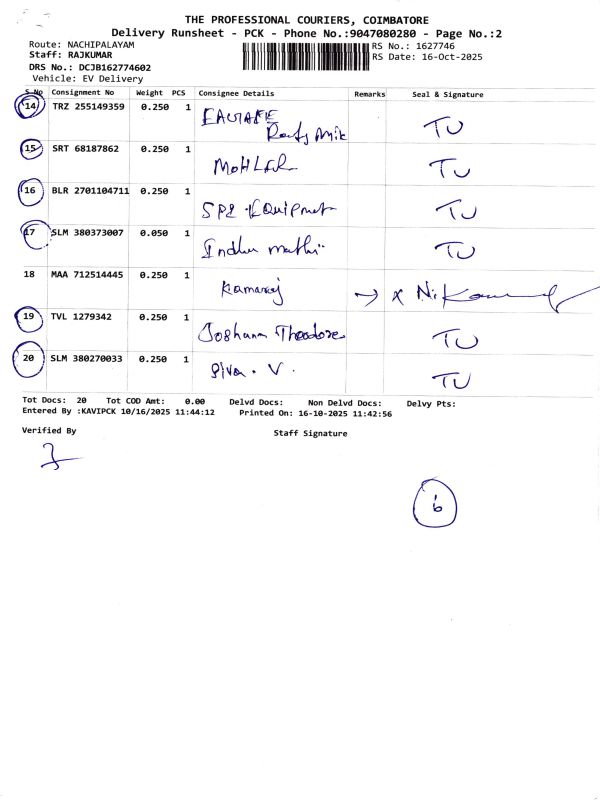 THE PROFESSIONAL COURIERS, COIMBATORE
Delivery Runsheet - PCK - Phone No.:9047080280 - Page No.:2
Route: NACHIPALAYAM RS No.: 1627746
Staff: RAJKUMAR RS Date: 16-Oct-2025
DRS No.: DCJB162774602
Vehicle: EV Delivery
S.No Consignment No Weight PCS Consignee Details Remarks Seal & Signature
14 TRZ 255149359 0.250 1
TU
15 SRT 68187862 0.250 1 TU
16 BLR 2701104711 0.250 1 SPL Equipment TU
17 SLM 380373007 0.050 1 Indhu mathi TU
18 MAA 712514445 0.250 1 Kamaraj
19 TVL 1279342 0.250 1 Joshana Theodore TU
20 SLM 380270033 0.250 1 Siva. V. TU
Tot Docs: 20 Tot COD Amt: 0.00 Delvd Docs: Non Delvd Docs: Delvy Pts:
Entered By :KAVIPCK 10/16/2025 11:44:12 Printed On: 16-10-2025 11:42:56
Verified By Staff Signature
6